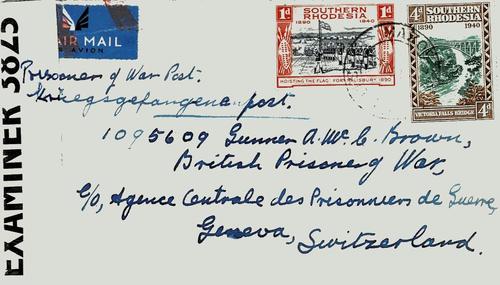 EXAMINER 3825
AIR MAIL
AVION
1d SOUTHERN 1d
RHODESIA
1890 1940
HOISTING THE FLAG FORT SALISBURY 1890
4d SOUTHERN
RHODESIA
1890 1940
VICTORIA FALLS BRIDGE 4d
Prisoner of War Post.
Kriegsgefangenenpost.
1095609 Gunner A. Mc. C. Brown,
British Prisoner of War,
C/o, Agence Centrale des Prisonniers de Guerre,
Geneva, Switzerland.